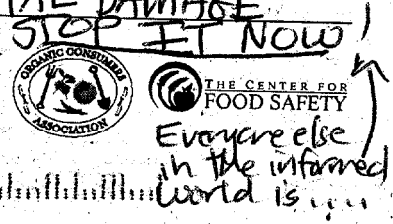 TAL DAMAGE
STOP IT NOW!
ORGANIC CONSUMERS
ASSOCIATION
THE CENTER FOR
FOOD SAFETY
Everyone else
in the informed
world is ....